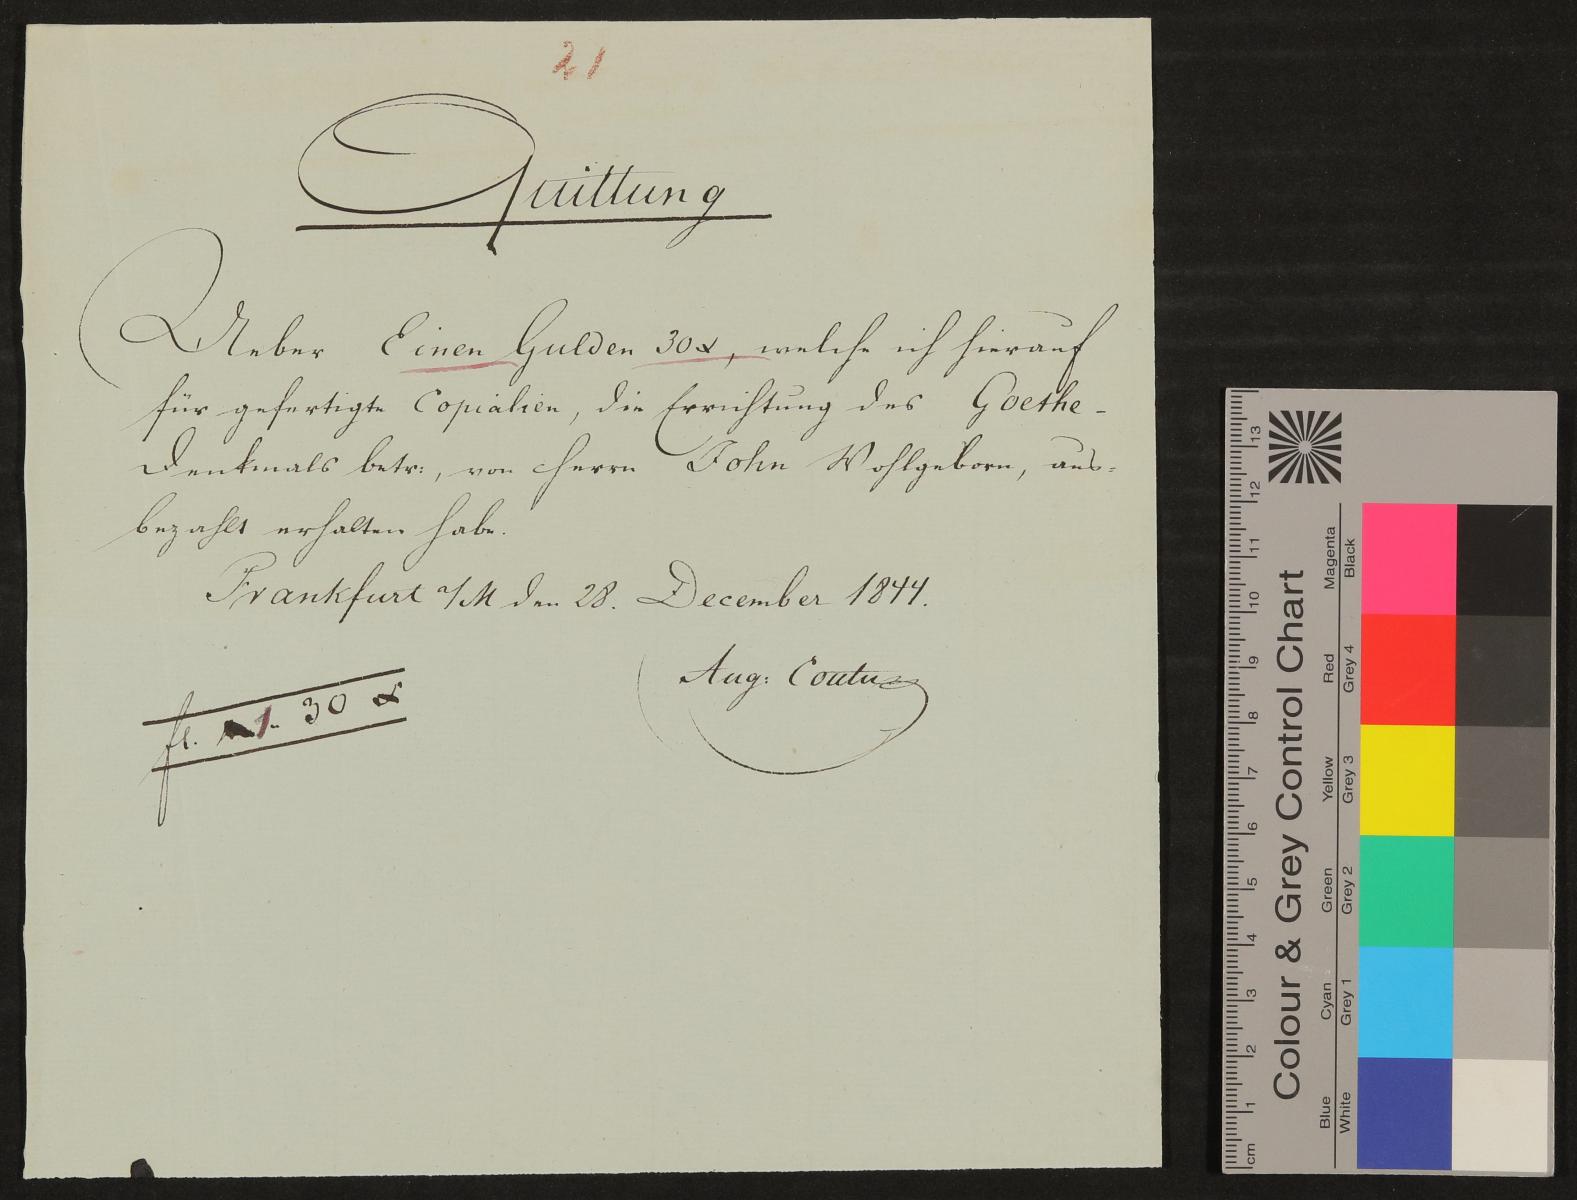 21
Quittung
Ueber Einen Gulden 30 x, welche ich hierauf
für gefertigte Copialien, die Errichtung des Goethe-
Denkmals betr:, von Herrn John Wohlgeborn, aus-
bezahlt erhalten habe.
Frankfurt a/M den 28. December 1844.
Aug:
fl. 1. 30 x
Colour & Grey Control Chart
Blue Cyan Green Yellow Red Magenta
White Grey 1 Grey 2 Grey 3 Grey 4 Black
cm 1 2 3 4 5 6 7 8 9 10 11 12 13